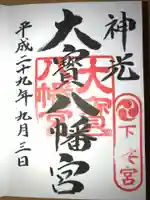 神光
大寳八幡宮
平成二十九年九月三日
大宝
八幡宮
下妻宮